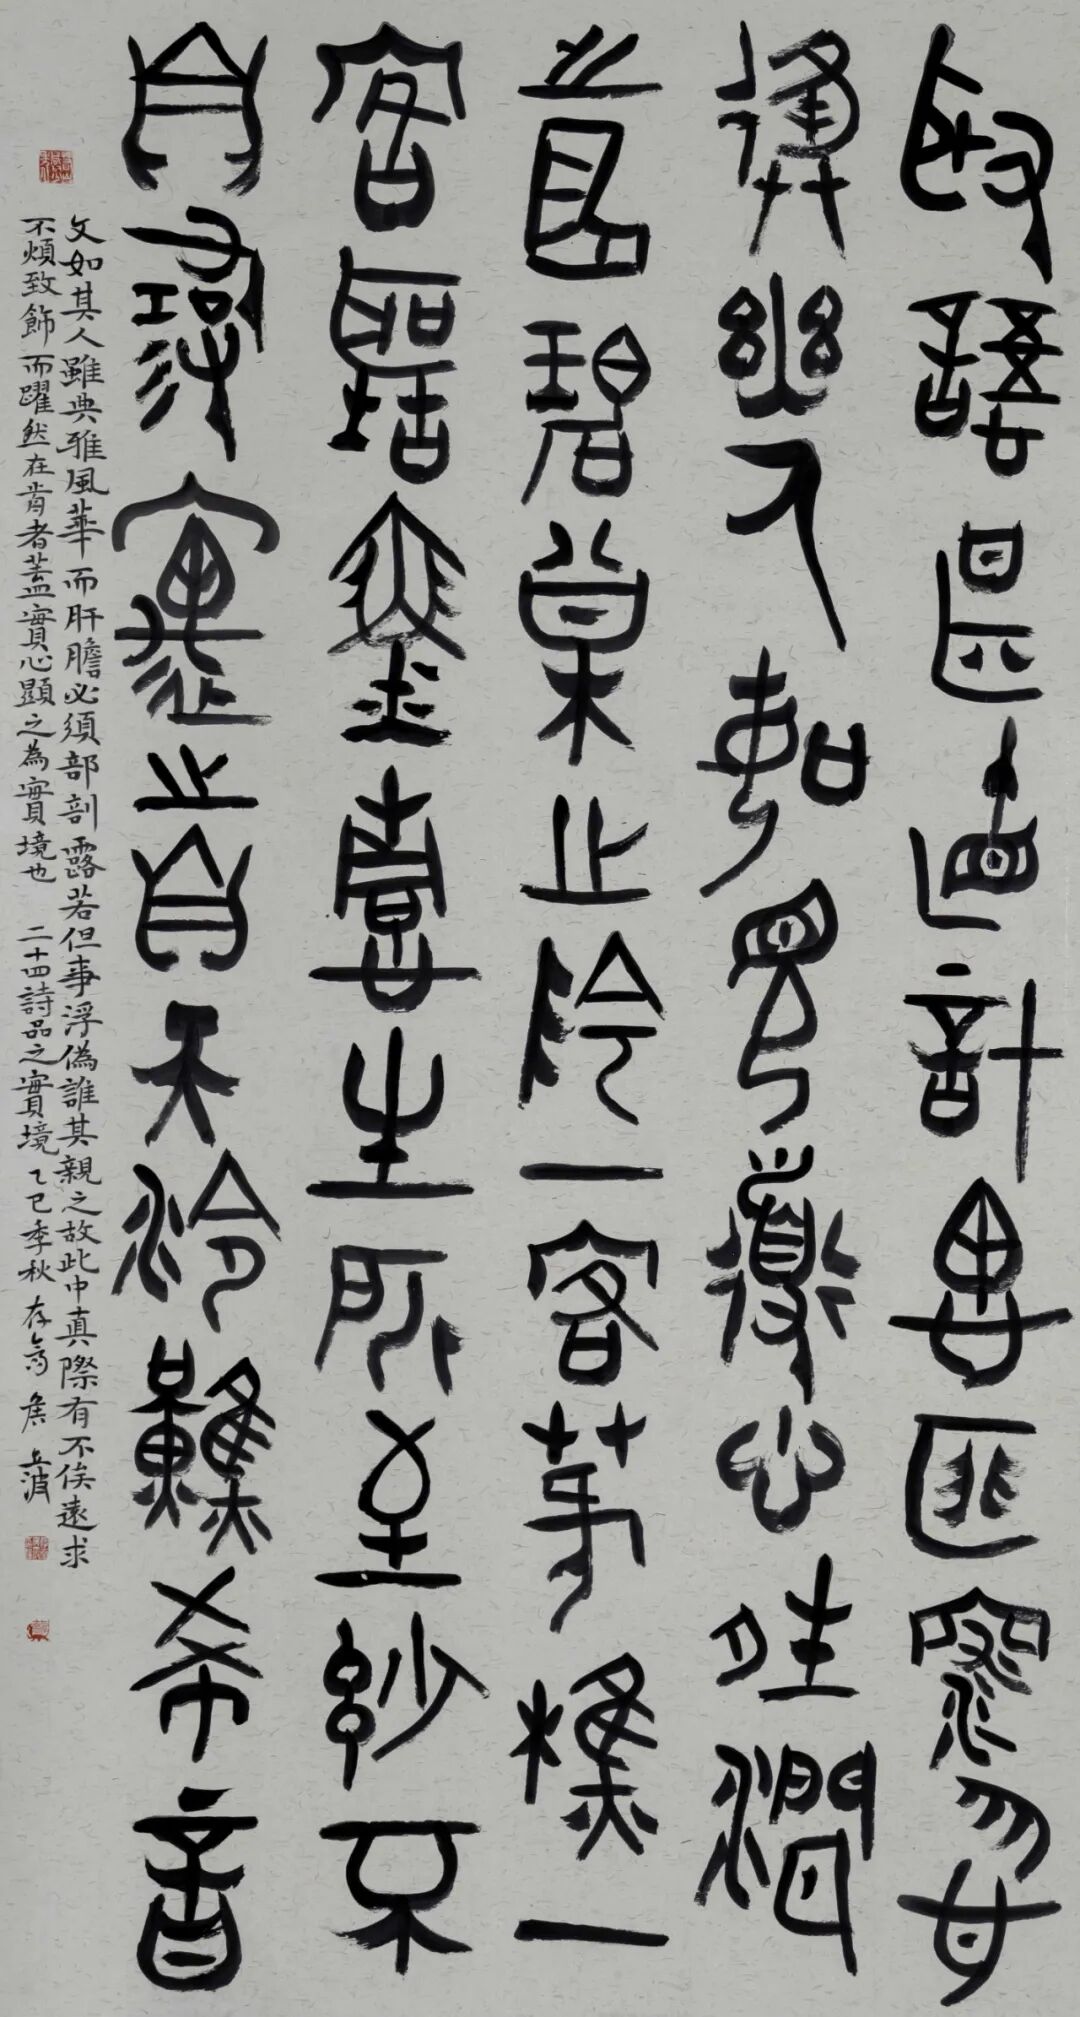 取語甚直計思匪深忽
逢幽人如見道心清澗
之曲碧松之陰一客荷樵一
客聽琴情性所至妙不
自尋遇之自天泠難希音
文如其人雖典雅風華而肝膽必須部剖露若但事浮偽誰其親之故此中真際有不俟遠求
不煩致飾而躍然在肯者蓋實心顯之為實境也 二十四詩品之實境 乙巳季秋 存